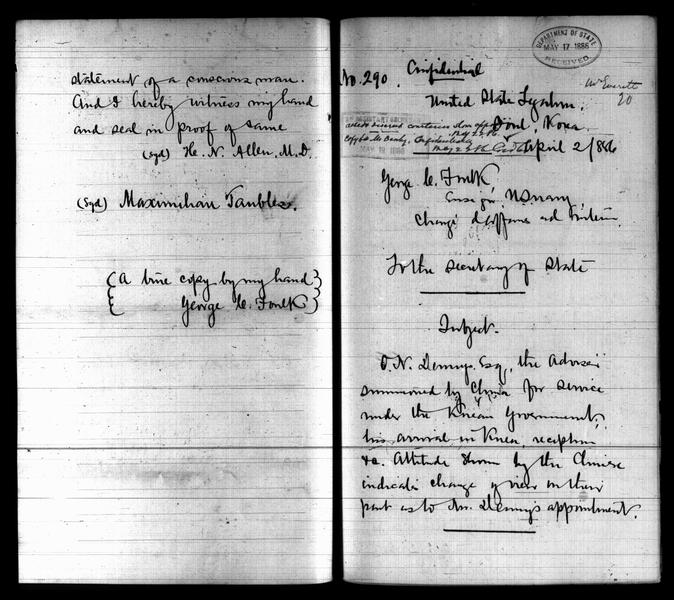 statement of a conscious man.
And I hereby witness my hand
and seal in proof of same
(sgd) H. N. Allen, M.D.
(Sgd) Maximilian Taubles.
(A true copy by my hand)
George C. Foulk
DEPARTMENT OF STATE
MAY 17 1886
RECEIVED
No. 290.
Confidential
Mr Everett
20
United States Legation,
Söul, Korea
MAY 18 1886
April 2/1886
George C. Foulk,
Ensign, USNavy,
Chargé d'affaires ad interim
To the Secretary of State
Subject.
O.N. Denny, Esq, the Adviser
summoned by China for service
under the Korean Government,
his arrival in Korea, reception
&c. Attitude shown by the Chinese
indicates change of view on their
part as to Mr. Denny's appointment.